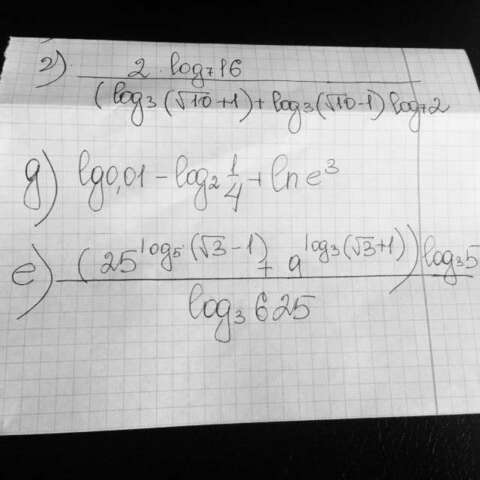 г) 2 log₇16
(log₃(√10+1)+log₃(√10-1)log₇2
д) lg0,01 - log₂ 1/4 + lne³
е) (25^log₅(√3-1) + 9^log₃(√3+1)) log₃5
log₃625